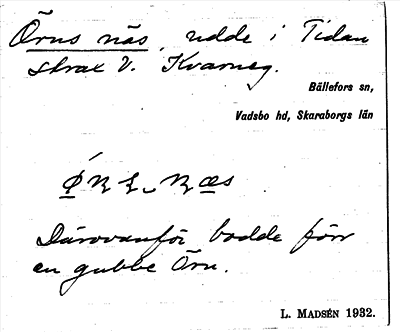 Örns näs, udde i Tidan
strax V. Kvarneg.
Bällefors sn,
Vadsbo hd, Skaraborgs län
Därovanför bodde förr
en gubbe Örn.
L. MADSÉN 1932.